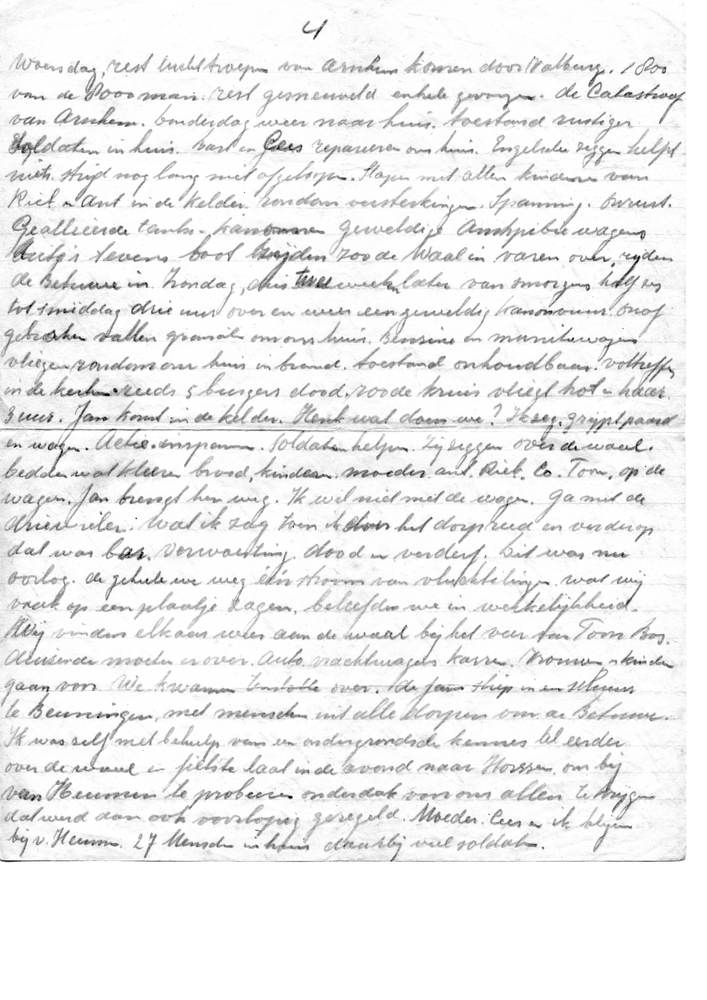 4
Woensdag, rest luchttroepen van Arnhem komen door Valburg. 1800
van de 8000 man. rest gesneuveld enkele gevangen. de Catastroof
van Arnhem. Donderdag weer naar huis. toestand rustiger
Soldaten in huis. Bart en Cees repareren ons huis. Engelsche zeggen helpt
niets. strijd nog lang niet afgelopen. Slapen met allen kinderen van
Riek en Ant in de kelder. rondom versterkingen. Spanning. onrust.
Geallieerde tanks. kanonnen geweldige Amphibie wagens
Auto's tevens boot rijden zoo de Waal in varen over, rijden
de Betuwe in. Zondag, dus twee weeken later van smorgens half zes
tot smiddag drie uur over en weer een geweldig kanonvuur. onaf
gebroken vallen granaten om ons huis. Benzine en munitiewagens
vliegen rondom ons huis in brand. toestand onhoudbaar. voltreffer
in de kerk. reeds 5 burgers dood. roode kruis vliegt hot en haar.
3 uur. Jan komt in de kelder. Henk wat doen we? Ik zeg. grijpt paard
en wagen. Actie. inspannen. Soldaten helpen. Zij zeggen over de waal.
bedden wat kleeren brood, kinderen. moeder. ant. Riek. Co. Toon, op de
wagen. Jan brengt hen weg. Ik wil niet met de wagen. Ga met de
driewieler. Wat ik zag toen ik door het dorp reed en verderop
dat was bar. verwoesting dood en verderf. Dit was nu
oorlog. de geheele weg een stroom van vluchtelingen. wat wij
vaak op een plaatje zagen, beleefden we in werkelijkheid.
Wij vinden elkaar weer aan de waal bij het veer van Toon Bos.
duizende moeten er over. Auto vrachtwagens karren. Vrouwen en kinderen
gaan voor. We kwamen tenslotte over. de fam sliep in een schuur
te Beuningen, met menschen uit alle dorpen van de Betuwe.
Ik was zelf met behulp van een ondergrondsche kennis al eerder
over de waal en fietste laat in de avond naar Horssen, om bij
van Heumen te proberen onderdak voor ons allen te krijgen
dat werd dan ook voorloopig geregeld. Moeder. Cees en ik blijven
bij v. Heumen. 27 Menschen in huis daarbij veel soldaten.